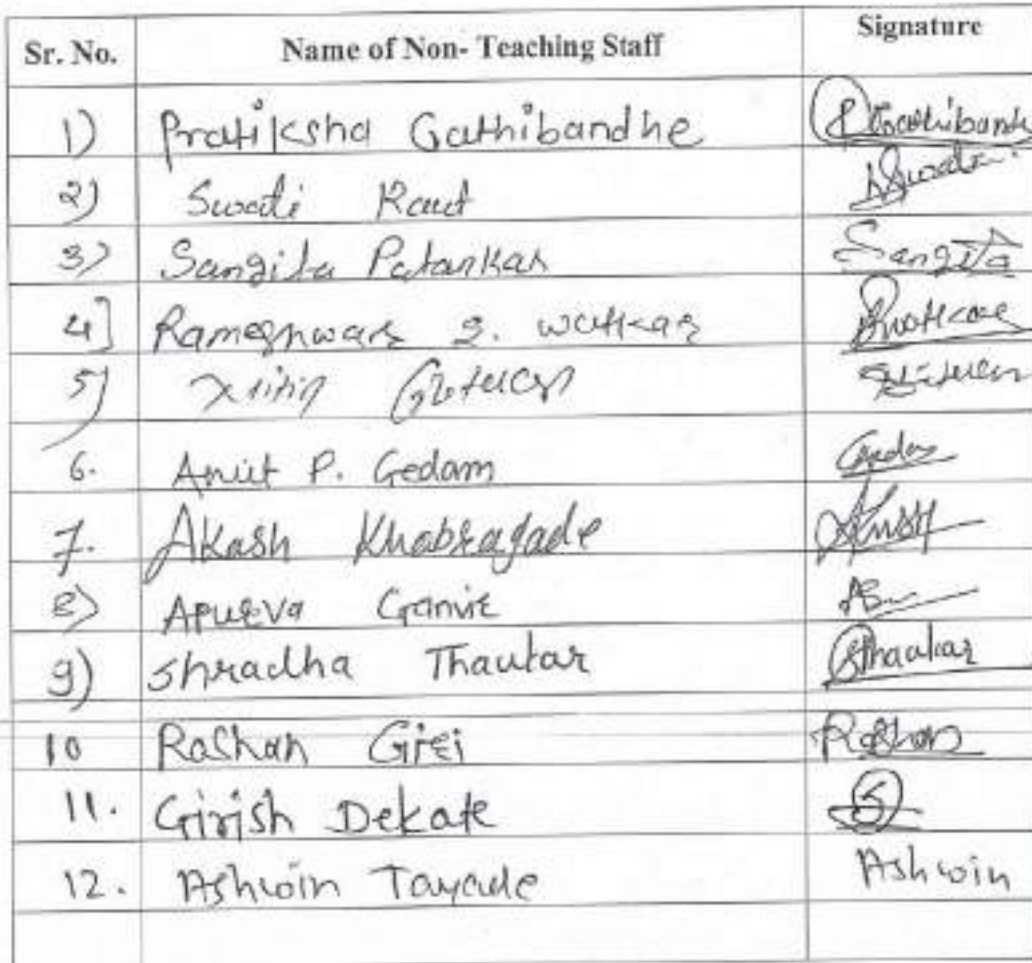 Sr. No. Name of Non- Teaching Staff Signature
1) Pratiksha Gathibandhe P Gathibandhe
2) Swati Raut Swati
3) Sangita Patankar Sangita
4] Rameshwar watkar
5)
6. Amit P. Gedam Gedam
7. Akash Khobragade
8) Apurva Ganvir
9) Shradha Thautar
10 Roshan Giri Roshan
11. Girish Dekate
12. Ashwin Tayade Ashwin